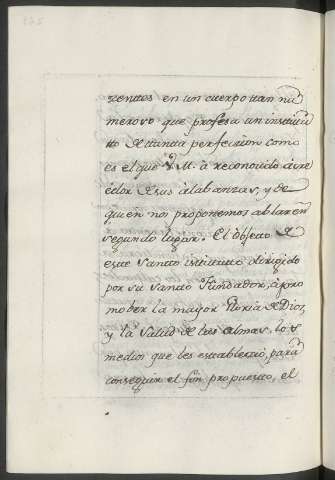 zientos en un cuerpo ttan nu
meroso que profesa un institu
tto de ttanta perfecion como
es el que V. M. à reconozido acre
edor de sus alabanzas, y de
quien nos proponemos ablar en
segundo lugar. El objecto de
este Santo istituto dirigido
por su Santo Fundador, à pro
mober la mayor Gloria de Dios,
y la Salud de las Almas, los
medios que les establecio, para
conseguir el fin propuesto, el